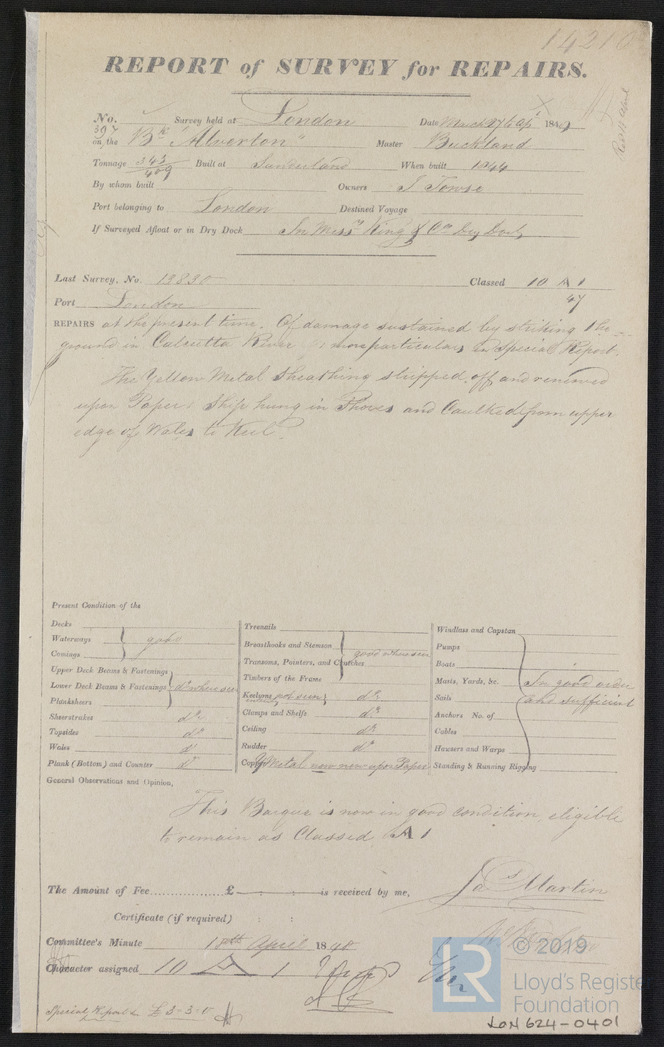 14210
REPORT of SURVEY for REPAIRS.
No. Survey held at London Date March 27 & Apl 184
397
on the Bk "Alverton" Master Buckland
Tonnage 343/409 Built at Sunderland When built 1844
By whom built Owners J Towse
Port belonging to London Destined Voyage
If Surveyed Afloat or in Dry Dock In Messrs King & Co Dry Dock
Last Survey, No. 12830 Classed 10 A 1
Port London 47
REPAIRS at the present time. Of damage sustained by striking the
ground in Calcutta River more particulars in Special Report.
The Yellow Metal Sheathing stripped off and renewed
upon Paper. Ship hung in Shores and Caulked from upper
edge of Wales to Keel.
Present Condition of the
Decks
Waterways } good
Comings
Upper Deck Beams & Fastenings
Lower Deck Beams & Fastenings } do where seen
Planksheers
Sheerstrakes do
Topsides do
Wales do
Plank (Bottom) and Counter do
Treenails
Breasthooks and Stemson } good where seen
Transoms, Pointers, and Crutches
Timbers of the Frame
Keelsons not seen } do
Clamps and Shelfs do
Ceiling do
Rudder do
Copper Y Metal now new upon Paper
Windlass and Capstan
Pumps
Boats
Masts, Yards, &c. In good order
Sails and sufficient
Anchors No. of
Cables
Hawsers and Warps
Standing & Running Rigging
General Observations and Opinion,
This Barque is now in good condition, eligible
to remain as Classed A 1
The Amount of Fee £ is received by me,
Jas Martin
Certificate (if required) : :
Committee's Minute 18th April 1848
Character assigned 10 A 1
Special Report £ 3-3-0
© 2019
LR
Lloyd's Register
Foundation
LON 624-0401